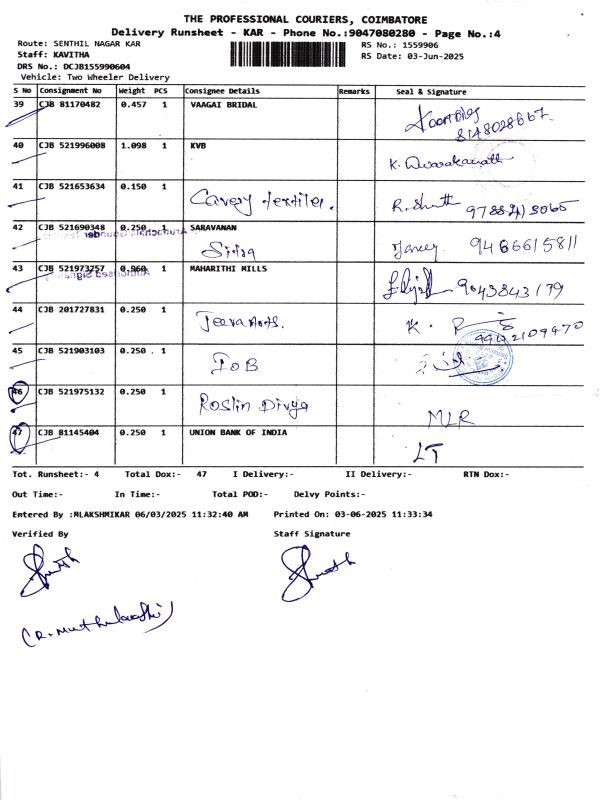 THE PROFESSIONAL COURIERS, COIMBATORE
Delivery Runsheet - KAR - Phone No.:9047080280 - Page No.:4
Route: SENTHIL NAGAR KAR RS No.: 1559906
Staff: KAVITHA RS Date: 03-Jun-2025
DRS No.: DCJB155990604
Vehicle: Two Wheeler Delivery
S No Consignment No Weight PCS Consignee Details Remarks Seal & Signature
39 CJB 81170482 0.457 1 VAAGAI BRIDAL
8148028667.
40 CJB 521996008 1.098 1 KVB K. Dwarakanath
41 CJB 521653634 0.150 1 Cavery textiles.
42 CJB 521690348 0.250 1 SARAVANAN 9466615811
43 CJB 521973257 0.960 1 MAHARITHI MILLS 9043843179
44 CJB 201727831 0.250 1 Jeeva Arts. K.
9942109470
45 CJB 521903103 0.250 . 1 IOB
46 CJB 521975132 0.250 1 Roslin Divya MLR
47 CJB 81145404 0.250 1 UNION BANK OF INDIA LT
Tot. Runsheet:- 4 Total Dox:- 47 I Delivery:- II Delivery:- RTN Dox:-
Out Time:- In Time:- Total POD:- Delvy Points:-
Entered By :MLAKSHMIKAR 06/03/2025 11:32:40 AM Printed On: 03-06-2025 11:33:34
Verified By Staff Signature